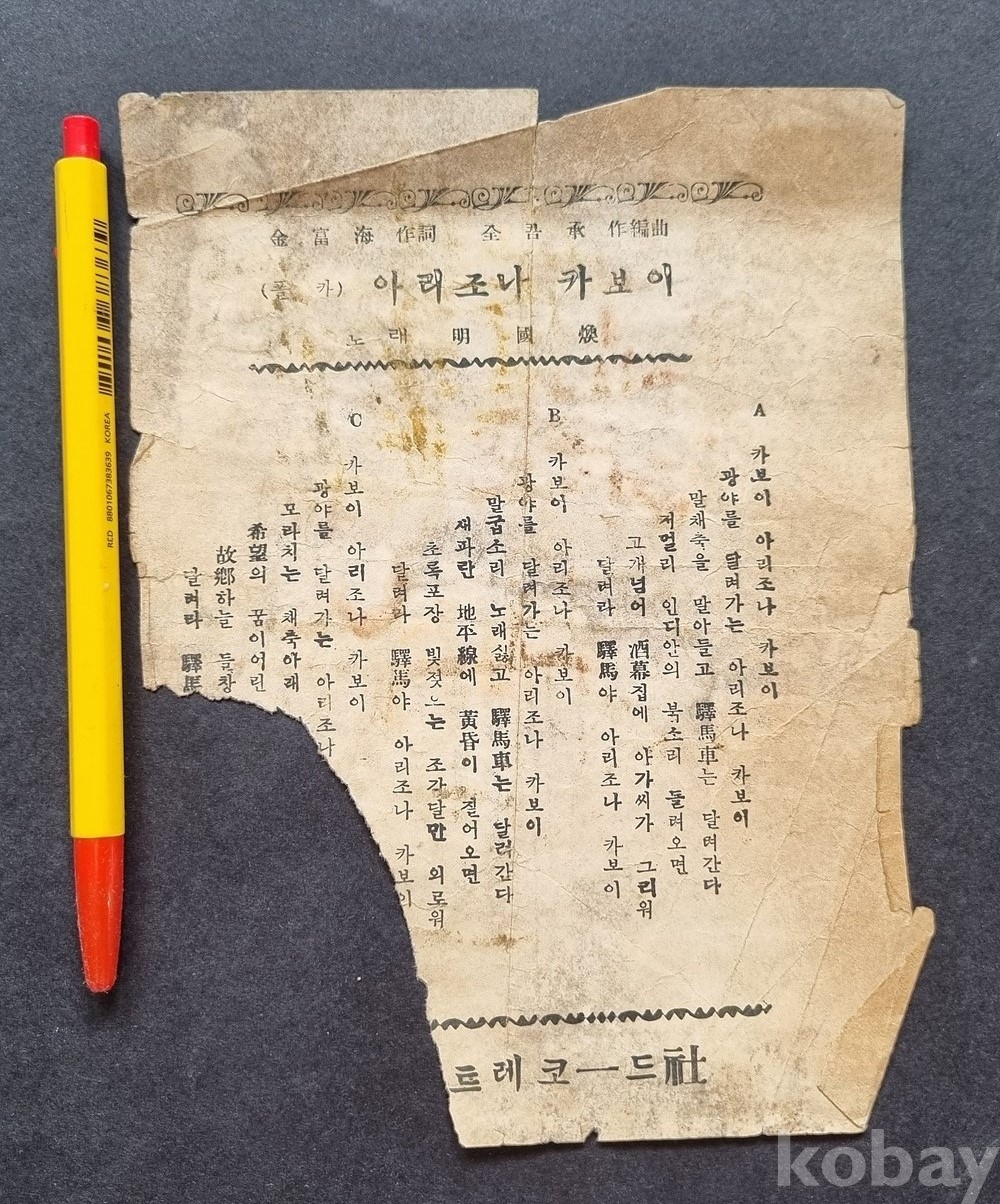 金富海 作詞 全吾承 作編曲
(폴카) 아리조나 카보이
노래 明國煥
A
카보이 아리조나 카보이
광야를 달려가는 아리조나 카보이
말채죽을 말아들고 驛馬車는 달려간다
저멀리 인디안의 북소리 들려오면
고개넘어 酒幕집에 아가씨가 그리워
달려라 驛馬야 아리조나 카보이
B
카보이 아리조나 카보이
광야를 달려가는 아리조나 카보이
말굽소리 노래싫고 驛馬車는 달려간다
새파란 地平線에 黃昏이 짙어오면
초록포장 빛젓는 조각달만 외로워
달려라 驛馬야 아리조나 카보이
C
카보이 아리조나 카보이
광야를 달려가는 아리조나
모라치는 채죽아래
希望의 꿈이어린
故鄕하늘 들창
달려라 驛馬
트레코ー드社
RED 8801067383639 KOREA
kobay